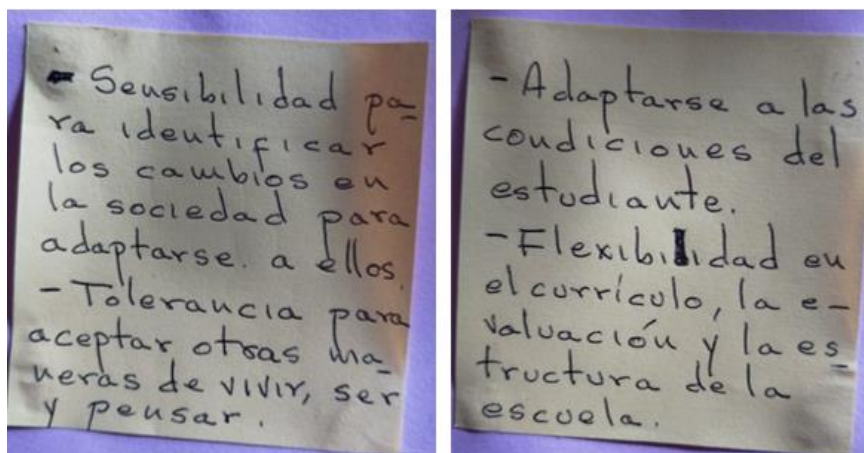 - Sensibilidad pa-
ra identificar
los cambios en
la sociedad para
adaptarse. a ellos.
- Tolerancia para
aceptar otras ma-
neras de vivir, ser
y pensar.
- Adaptarse a las
condiciones del
estudiante.
- Flexibilidad en
el currículo, la e-
valuación y la es-
tructura de la
escuela.